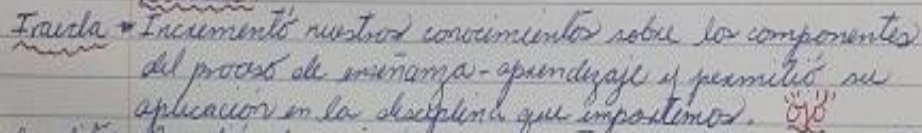 Iraida - Incrementó nuestros conocimientos sobre los componentes
del proceso de enseñanza-aprendizaje y permitió su
aplicación en la disciplina que impartimos. Ojo